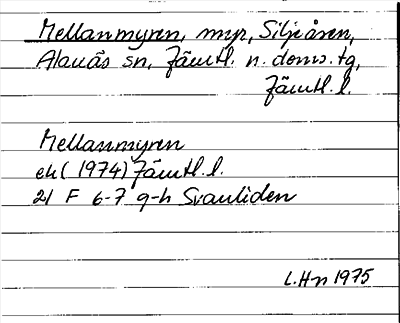 Mellanmyren, myr, Siljeåsen,
Alanäs sn, Jämtl. n. doms. tg,
Jämtl. l.
Mellanmyren
ek (1974) Jämtl. l.
21 F 6-7 g-h Svanliden
L. H-n 1975